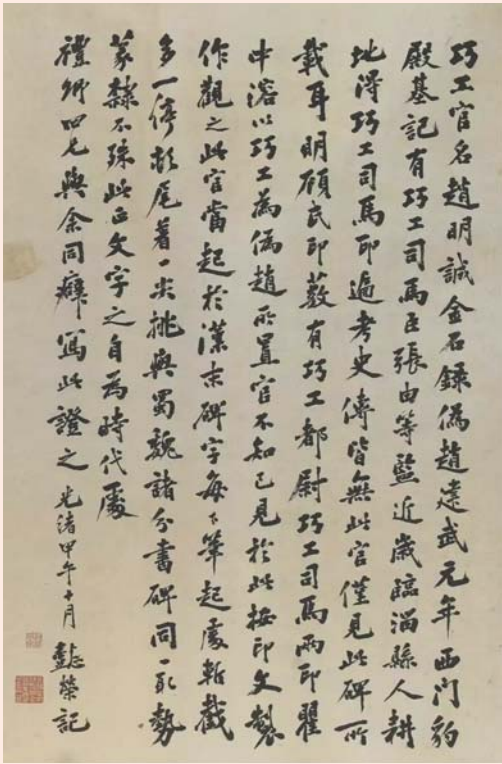 巧工官名趙明誠金石錄偽趙建武元年西門豹
殿基記有巧工司馬臣張由等監近歲臨淄縣人耕
地得巧工司馬印遍考史傳皆無此官僅見此碑所
載耳明顧氏印藪有巧工都尉巧工司馬兩印瞿
中溶以巧工為偽趙所置官不知已見於此按印文製
作觀之此官當起於漢末碑字每下筆起處斬截
多一停頓尾著一尖挑與蜀魏諸分書碑同一取勢
篆隸不殊此正文字之自為時代處
禮卿四兄與余同癖寫此證之 光緒甲午十月 懿榮記